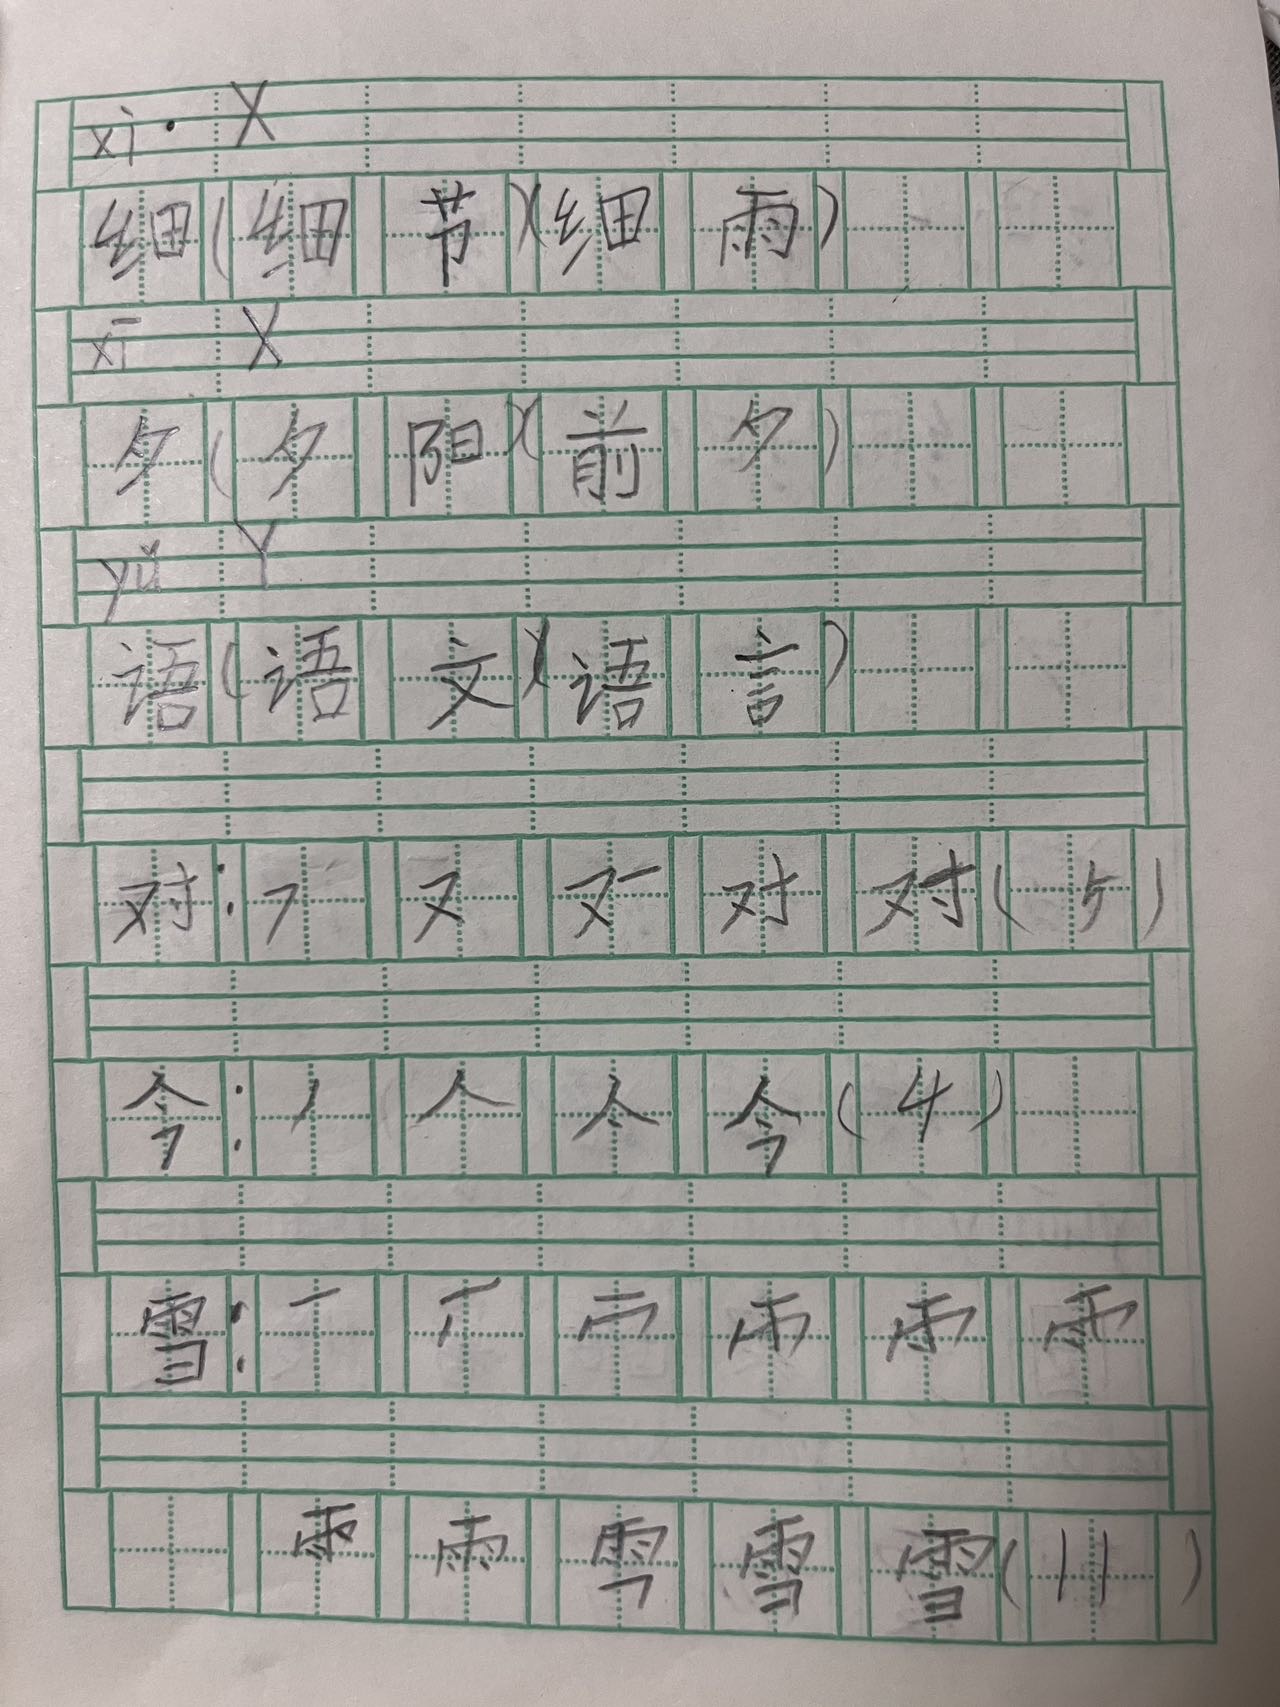 xì X
细(细节)(细雨)
xī X
夕(夕阳)(前夕)
yǔ Y
语(语文)(语言)
对:㇇又对对(5)
今:丿人今(4)
雪:一雨
雨雪雪(11)